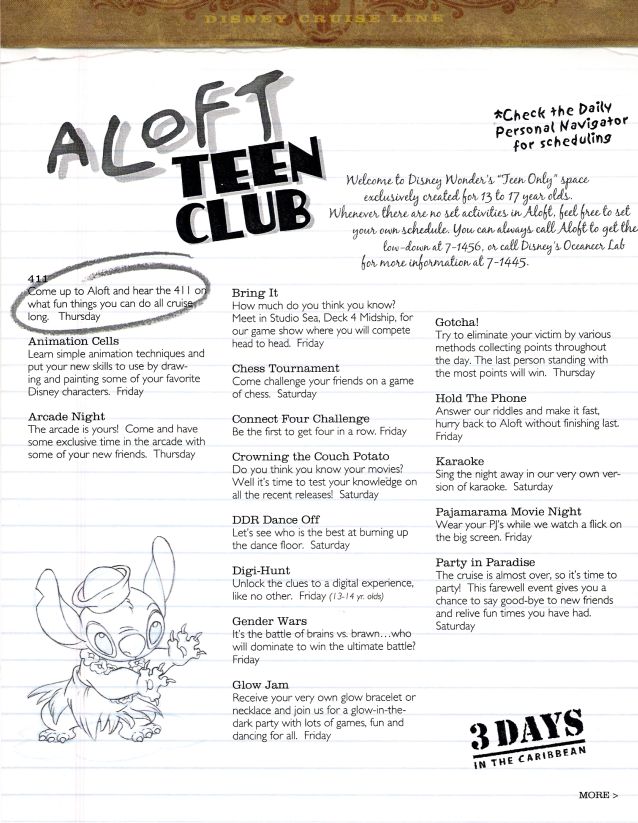 DISNEY CRUISE LINE
ALOFT
TEEN
CLUB
*Check the Daily
Personal Navigator
for scheduling
Welcome to Disney Wonder's "Teen Only" space
exclusively created for 13 to 17 year olds.
Whenever there are no set activities in Aloft, feel free to set
your own schedule. You can always call Aloft to get the
low-down at 7-1456, or call Disney's Oceaneer Lab
for more information at 7-1445.
411
Come up to Aloft and hear the 411 on
what fun things you can do all cruise
long. Thursday
Animation Cells
Learn simple animation techniques and
put your new skills to use by draw-
ing and painting some of your favorite
Disney characters. Friday
Arcade Night
The arcade is yours! Come and have
some exclusive time in the arcade with
some of your new friends. Thursday
Bring It
How much do you think you know?
Meet in Studio Sea, Deck 4 Midship, for
our game show where you will compete
head to head. Friday
Chess Tournament
Come challenge your friends on a game
of chess. Saturday
Connect Four Challenge
Be the first to get four in a row. Friday
Crowning the Couch Potato
Do you think you know your movies?
Well it's time to test your knowledge on
all the recent releases! Saturday
DDR Dance Off
Let's see who is the best at burning up
the dance floor. Saturday
Digi-Hunt
Unlock the clues to a digital experience,
like no other. Friday (13-14 yr. olds)
Gender Wars
It's the battle of brains vs. brawn...who
will dominate to win the ultimate battle?
Friday
Glow Jam
Receive your very own glow bracelet or
necklace and join us for a glow-in-the-
dark party with lots of games, fun and
dancing for all. Friday
Gotcha!
Try to eliminate your victim by various
methods collecting points throughout
the day. The last person standing with
the most points will win. Thursday
Hold The Phone
Answer our riddles and make it fast,
hurry back to Aloft without finishing last.
Friday
Karaoke
Sing the night away in our very own ver-
sion of karaoke. Saturday
Pajamarama Movie Night
Wear your PJ's while we watch a flick on
the big screen. Friday
Party in Paradise
The cruise is almost over, so it's time to
party! This farewell event gives you a
chance to say good-bye to new friends
and relive fun times you have had.
Saturday
3 DAYS
IN THE CARIBBEAN
MORE >